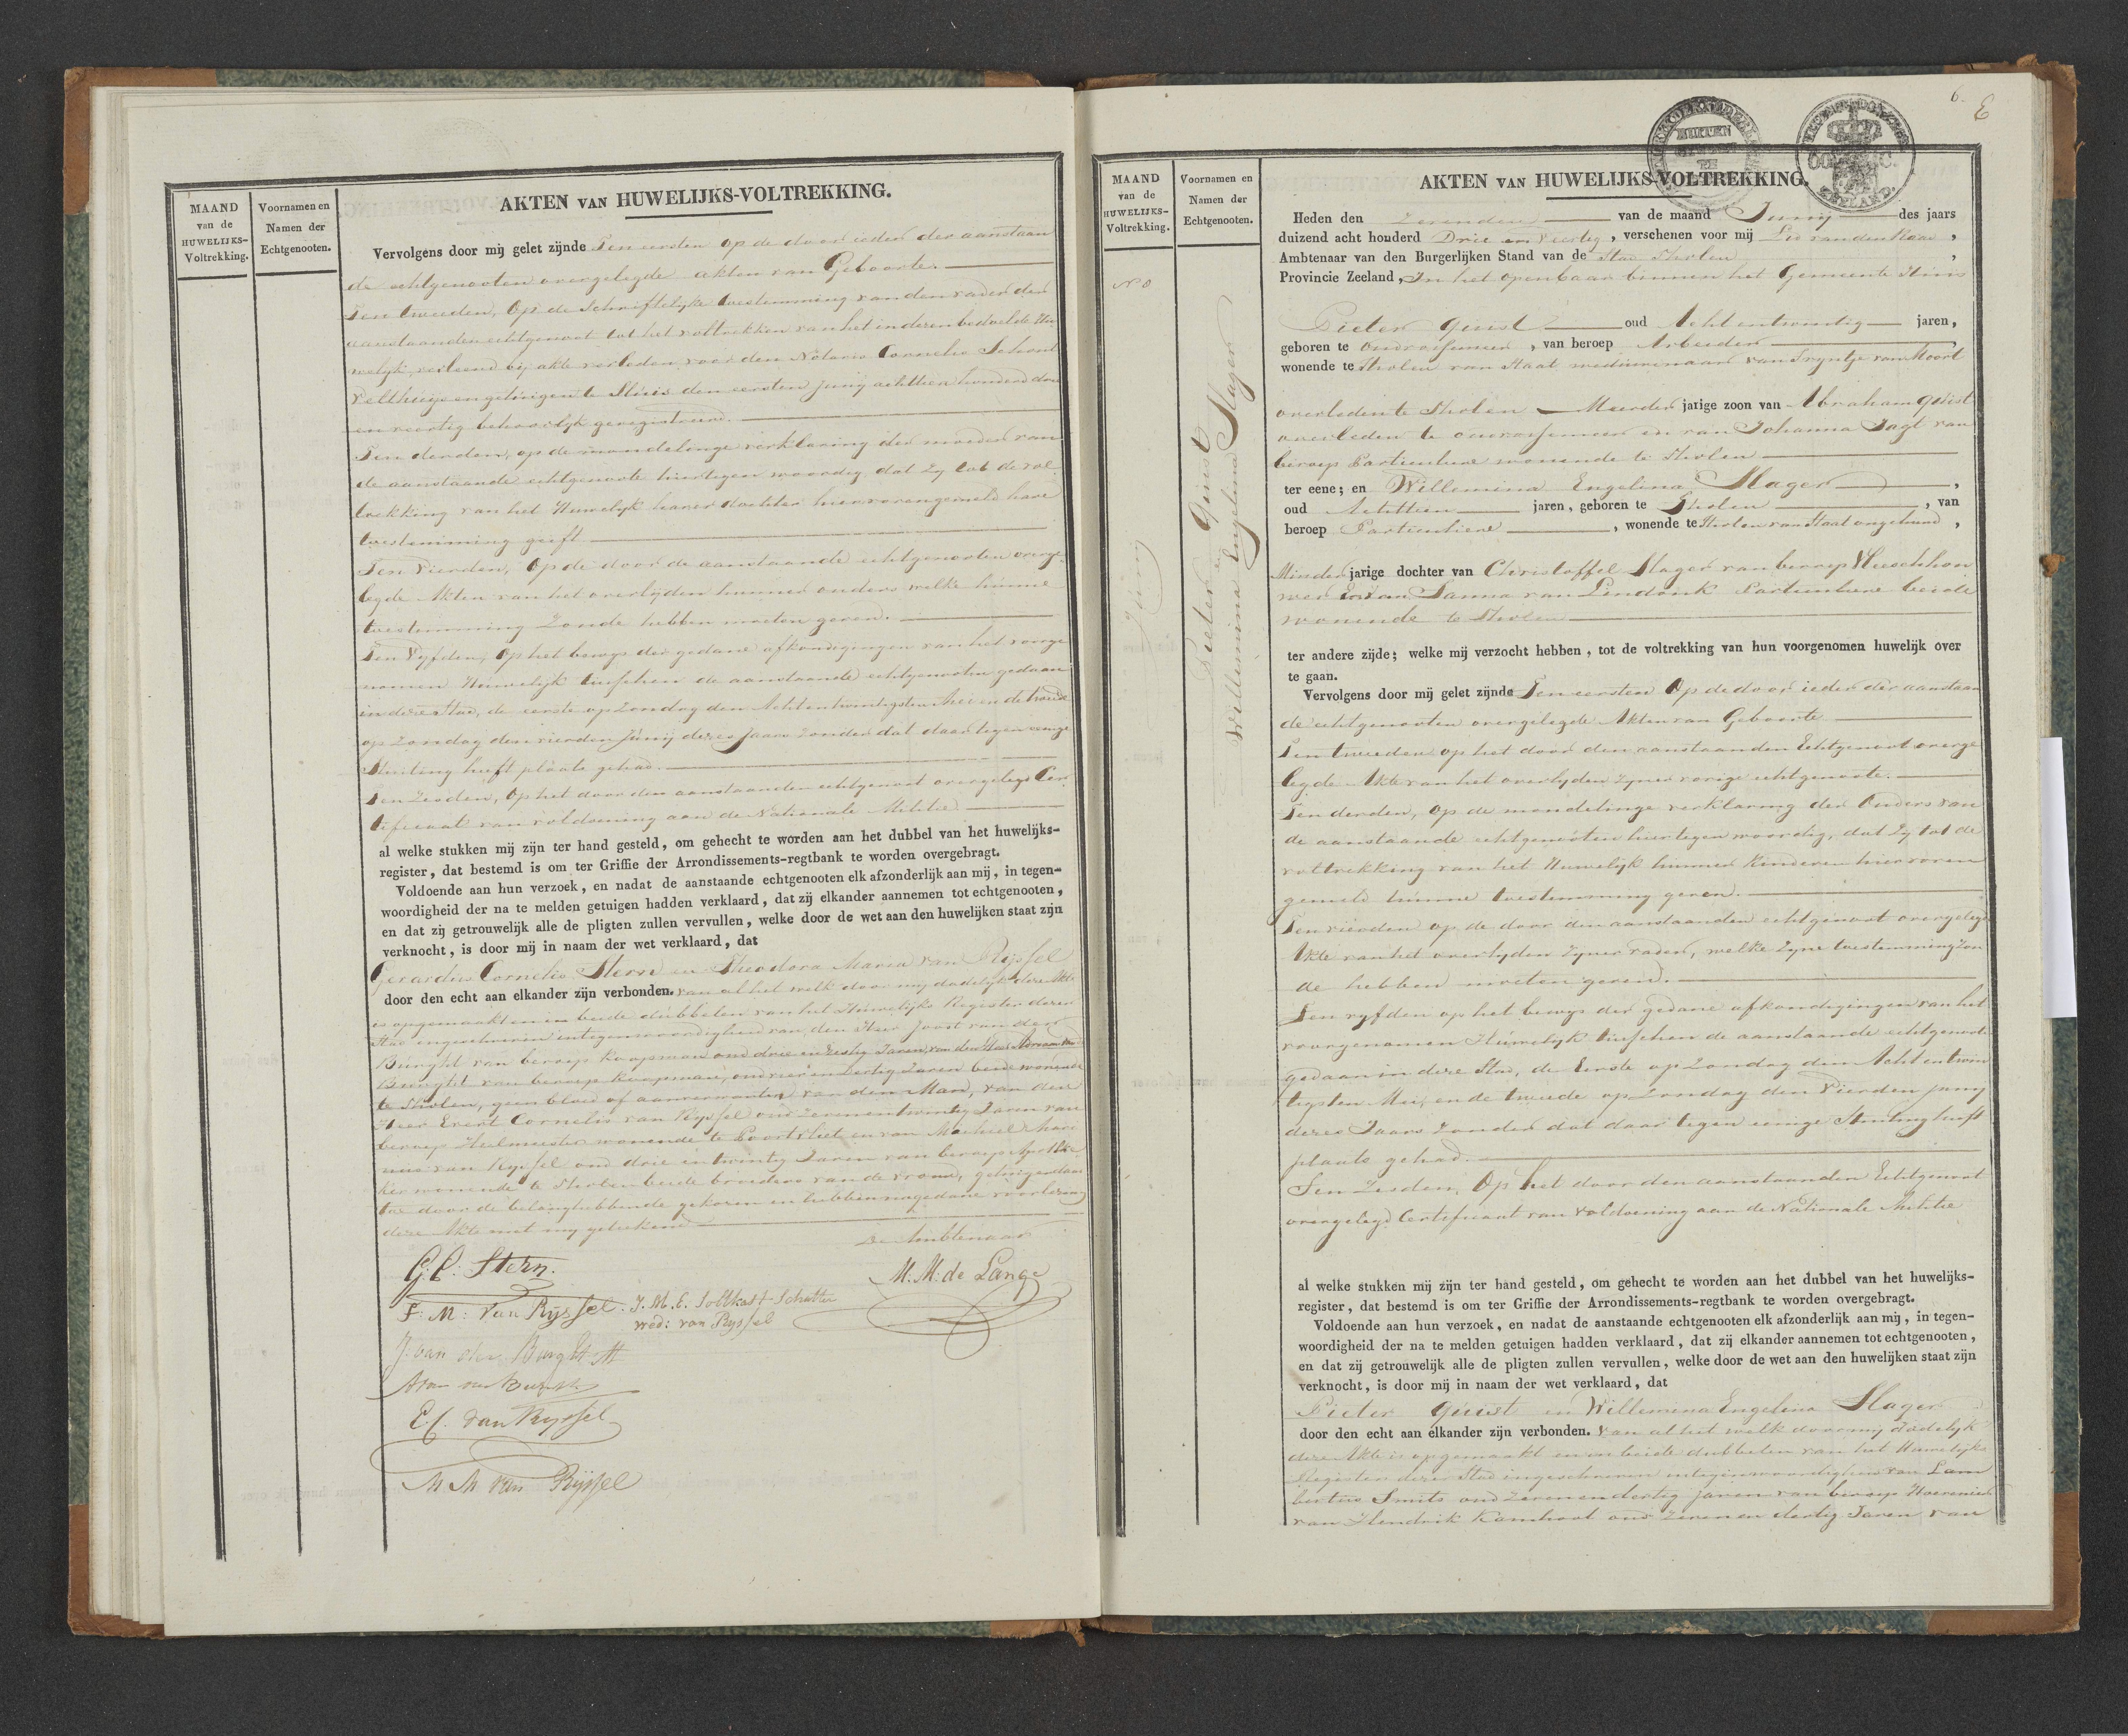 MAAND
van de
HUWELIJKS-
Voltrekking.
Voornamen en
Namen der
Echtgenooten.
AKTEN VAN HUWELIJKS-VOLTREKKING.
Vervolgens door mij gelet zijnde Ten eersten op de door ieder der aanstaan
de echtgenooten overgelegde akten van Geboorte.
Ten tweeden, Op de Schriftelyke toestemming van den vader der
aanstaanden echtgenoot tot het voltrekken van het in dezen bedoelde Hu-
welyk, verleend bij akte verleden voor den Notaris Cornelis
en getuigen te Sluis den eersten Juny achttien honderd drie
en veertig behoorlyk geregistreerd.
Ten derden, op de mondelinge verklaring der moeder van
de aanstaande echtgenoote hier tegen woordig dat zy tot de vol
trekking van het Huwelyk harer dochter hiervorengemeld hare
toestemming geeft
Ten Vierden, Op de door de aanstaande echtgenooten overge-
legde Akten van het overlyden hunner ouders welke hunne
toestemming Zoude hebben moeten geven.
Ten Vyfden, Op het bewys der gedane afkondigingen van het voorge
nomen Huwelyk tusschen de aanstaande echtgenooten gedaan
in deze Stad, de eerste op Zondag den Achtentwintigsten Mei en de tweede
op Zondag den vierden Junij dezes Jaars zonder dat daar tegen eenige
Stuiting heeft plaats gehad.
Ten Zesden, Op het door den aanstaanden echtgenoot overgelegd Cer
tificaat van voldoening aan de Nationale Militie
al welke stukken mij zijn ter hand gesteld, om gehecht te worden aan het dubbel van het huwelijks-
register, dat bestemd is om ter Griffie der Arrondissements-regtbank te worden overgebragt.
Voldoende aan hun verzoek, en nadat de aanstaande echtgenooten elk afzonderlijk aan mij, in tegen-
woordigheid der na te melden getuigen hadden verklaard, dat zij elkander aannemen tot echtgenooten,
en dat zij getrouwelijk alle de pligten zullen vervullen, welke door de wet aan den huwelijken staat zijn
verknocht, is door mij in naam der wet verklaard, dat
Gerardus Cornelis Stern en Theodora Maria van Rijssel
door den echt aan elkander zijn verbonden. van al het welk door mij dadelyk deze Akte
is opgemaakt en in beide dubbelen van het Huwelyks Register dezer
Stad ingeschreven in tegenwoordigheid van den Heer Joost van der
Burght van beroep Koopman oud drie en zestig Jaren, van den Heer Abraham van
Burght van beroep Koopman, oud vier en Dertig Jaren beide wonende
te Tholen, geen bloed of aanverwanten van den Man, van den
Heer Evert Cornelis van Ryssel oud Zeven en twintig Jaren van
beroep Heelmeester wonende te Poortvliet en van Machiel Mari
nus van Ryssel oud drie en twintig Jaren van beroep Apothe
ker wonende te Tholen beide broeders van de vrouw, getuigen daar
toe door de belanghebbende gekozen en hebben na gedane voorlezing
deze Akte met mij getekend
De Ambtenaar
G:C: Stern.
M: M: de Lange
T: M: van Rijssel. J. M. E. Soltkast Schutter
wed: van Ryssel
J. van der Burght
Abrm van der Burght
E.C. van Ryssel
M M van Rijssel
6.
E
MAAND
van de
HUWELIJKS-
Voltrekking.
Voornamen en
Namen der
Echtgenooten.
No 8
Juny
Pieter Quist
Willemina Engelina Slager
AKTEN VAN HUWELIJKS-VOLTREKKING.
ZEELAND.
Heden den Zevenden van de maand Juny des jaars
duizend acht honderd Drie en Veertig, verschenen voor mij
Ambtenaar van den Burgerlijken Stand van de Stad Tholen,
Provincie Zeeland, In het openbaar binnen het Gemeente Huis
Pieter Quist oud Acht entwintig jaren,
geboren te Oudvossemeer, van beroep Arbeider
wonende te Tholen van Staat weduwenaar van Tryntje van Moort
overleden te Tholen Meerder jarige zoon van Abraham Quist
overleden te oudvossemeer en van Johanna Jagt van
beroep Particuliere wonende te Tholen
ter eene; en Willemina Engelina Slager,
oud Achttien jaren, geboren te Tholen, van
beroep Particuliere, wonende te Tholen van Staat ongehuwd,
Minder jarige dochter van Christoffel Slager van beroep Vleeschhou
wer En van Sanna van Lindonk Particuliere beide
wonende te Tholen
ter andere zijde; welke mij verzocht hebben, tot de voltrekking van hun voorgenomen huwelijk over
te gaan.
Vervolgens door mij gelet zijnde Ten eersten Op de door ieder der aanstaan
de echtgenooten overgelegde Akten van Geboorte
Ten tweeden op het door den aanstaanden Echtgenoot overge
legde Akte van het overlyden zyner vorige echtgenoote.
Ten derden, Op de mondelinge verklaring der Ouders van
de aanstaande echtgenooten hier tegen woordig, dat zy tot de
voltrekking van het Huwelyk hunner Kinderen hier voren
gemeld hunne toestemming geven.
Ten vierden op de door den aanstaanden echtgenoot overgelegde
Akte van het overlyden zyner vader, welke zyne toestemming zou
de hebben moeten geven.
Ten vyfden op het bewys der gedane afkondigingen van het
voorgenomen Huwelyk tusschen de aanstaande echtgenoote
gedaan in deze Stad, de Eerste op Zondag den Acht en twin
tigsten Mei, en de tweede op Zondag den Vierden juny
dezes Jaars Zonder dat daar tegen eenige Stuiting heeft
plaats gehad.
Ten Zesden, Op het door den aanstaanden Echtgenoot
overgelegd Certificaat van voldoening aan de Nationale Militie
al welke stukken mij zijn ter hand gesteld, om gehecht te worden aan het dubbel van het huwelijks-
register, dat bestemd is om ter Griffie der Arrondissements-regtbank te worden overgebragt.
Voldoende aan hun verzoek, en nadat de aanstaande echtgenooten elk afzonderlijk aan mij, in tegen-
woordigheid der na te melden getuigen hadden verklaard, dat zij elkander aannemen tot echtgenooten,
en dat zij getrouwelijk alle de pligten zullen vervullen, welke door de wet aan den huwelijken staat zijn
verknocht, is door mij in naam der wet verklaard, dat
Pieter Quist en Willemina Engelina Slager
door den echt aan elkander zijn verbonden. Van al het welk door mij dadelyk
deze Akte is opgemaakt en in beide dubbelen van het Huwelyks
Register dezer Stad ingeschreven in tegenwoordigheid van Lam
bertus Smits oud Zeven en dertig jaren van beroep Hoevenier
van Hendrik Kamhoot oud Zeven en dertig Jaren van